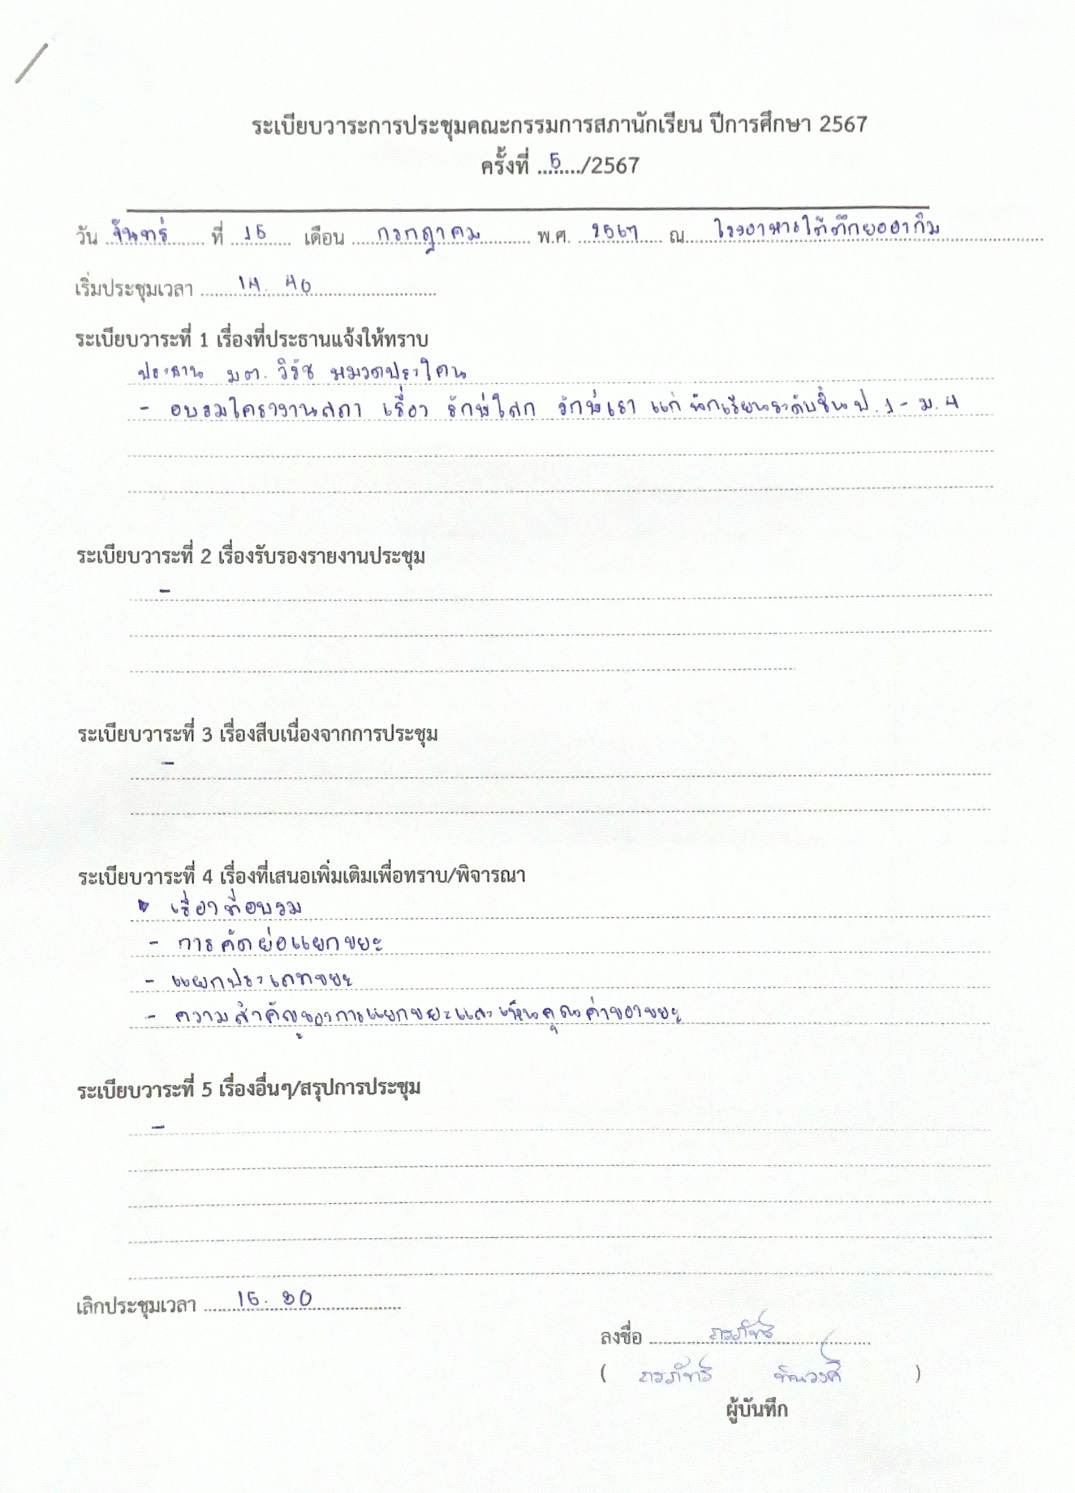 ระเบียบวาระการประชุมคณะกรรมการสภานักเรียน ปีการศึกษา 2567
ครั้งที่ ...5..../2567
วัน จันทร์ ที่ 15 เดือน กรกฎาคม พ.ศ. 2567 ณ โรงอาหารใต้ตึกยออากิม
เริ่มประชุมเวลา 14. 40
ระเบียบวาระที่ 1 เรื่องที่ประธานแจ้งให้ทราบ
ประธาน มต. วิรัช หมวดประโคน
- อบรมโครงงานสภา เรื่อง รักษ์โลก รักษ์เรา แก่ นักเรียนระดับชั้น ป.1 - ม.4
ระเบียบวาระที่ 2 เรื่องรับรองรายงานประชุม
-
ระเบียบวาระที่ 3 เรื่องสืบเนื่องจากการประชุม
-
ระเบียบวาระที่ 4 เรื่องที่เสนอเพิ่มเติมเพื่อทราบ/พิจารณา
เรื่องที่อบรม
- การคัดย่อแยกขยะ
- แยกประเภทขยะ
- ความสำคัญของการแยกขยะและเห็นคุณค่าของขยะ
ระเบียบวาระที่ 5 เรื่องอื่นๆ/สรุปการประชุม
-
เลิกประชุมเวลา 15. 30
ลงชื่อ ภรภัทร
( ภรภัทร )
ผู้บันทึก